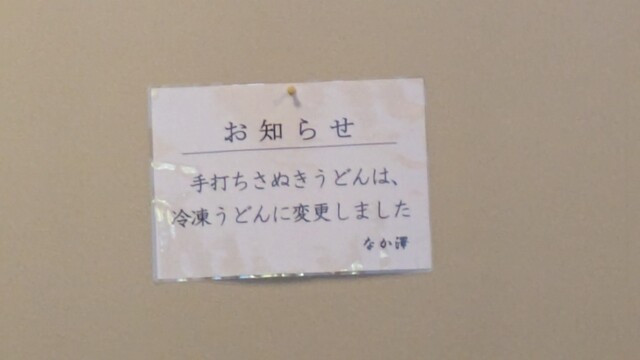 お知らせ
手打ちさぬきうどんは、
冷凍うどんに変更しました
なか澤